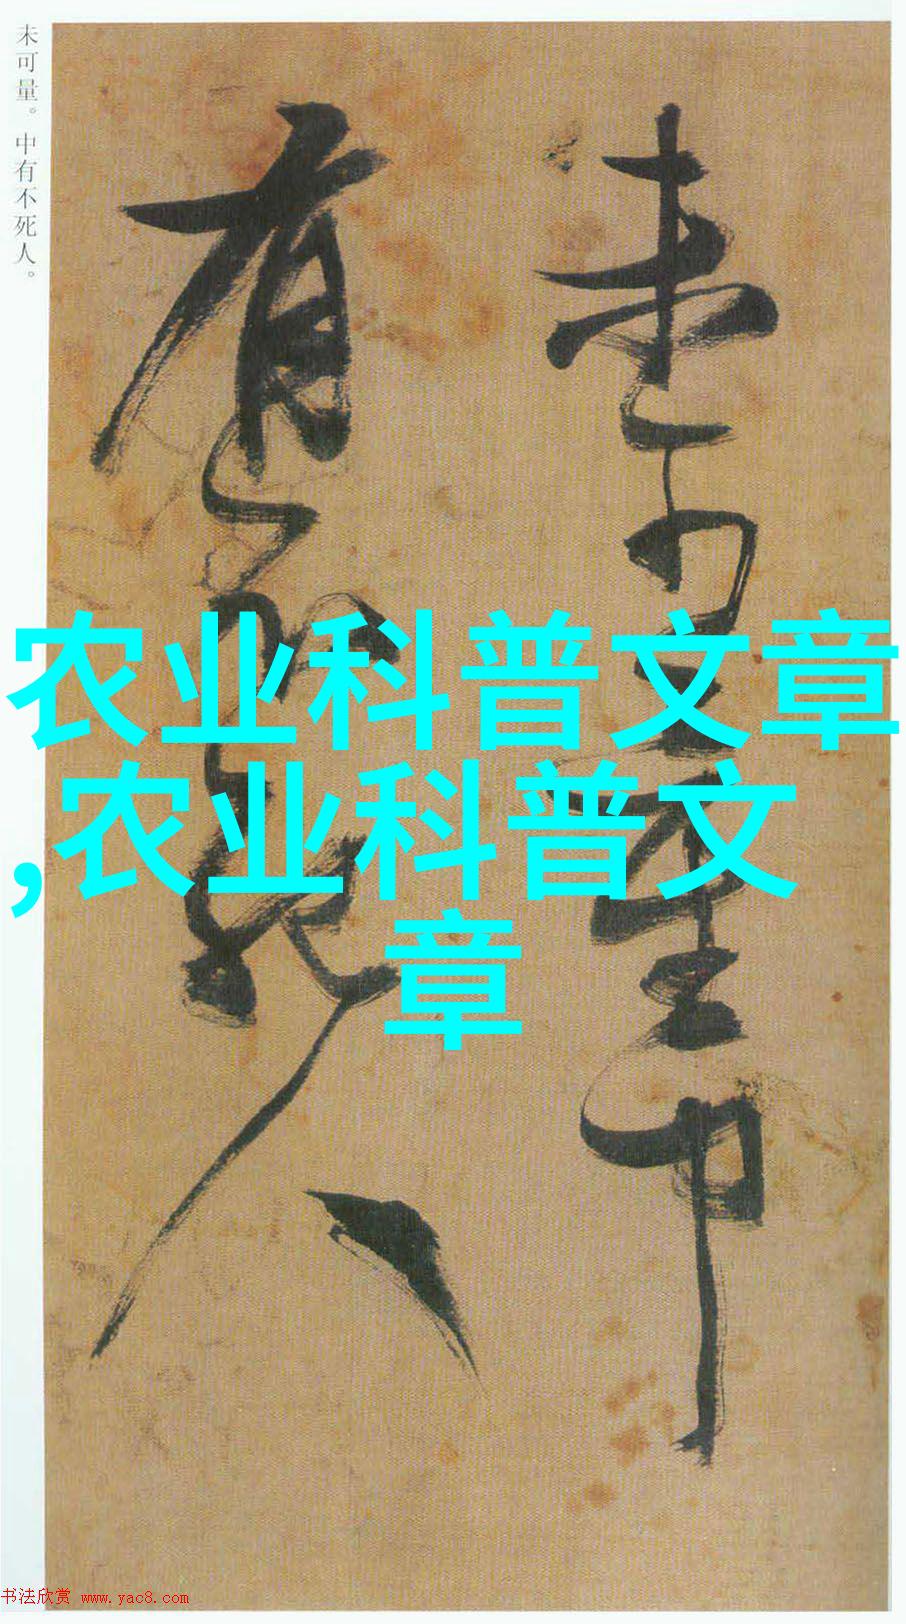 未可量。中有不死人。
未可量中
有不死人
农业科普文章
,农业科普文
章
书法欣赏 www.yac8.com